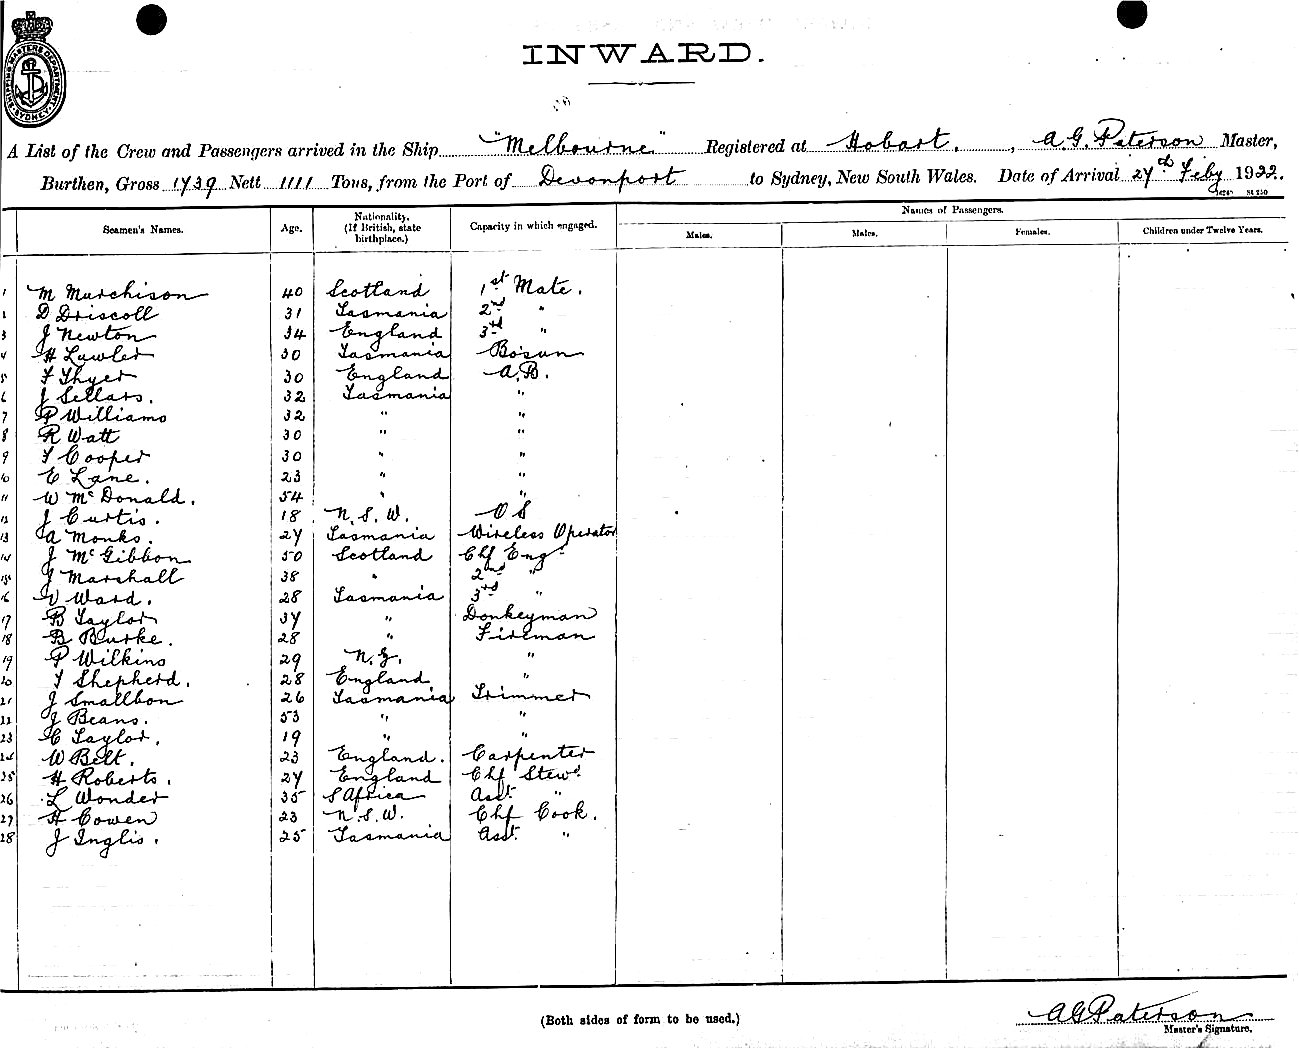 SHIPPING MASTERS DEPARTMENT SYDNEY
INWARD.
A List of the Crew and Passengers arrived in the Ship "Melbourne" Registered at Hobart, , A.G. Paterson Master,
Burthen, Gross 1739 Nett 1111 Tons, from the Port of Devonport to Sydney, New South Wales. Date of Arrival 27th Feby 1922.
Seamen's Names. Age. Nationality. (If British, state birthplace.) Capacity in which engaged. Names of Passengers.
Males. Males. Females. Children under Twelve Years.
1 M Murchison 40 Scotland 1st Mate.
2 D Driscoll 31 Tasmania 2nd "
3 J Newton 34 England 3rd "
4 H Lawler 30 Tasmania Bosun
5 F Thyer 30 England A.B.
6 J Sellars. 32 Tasmania "
7 P Williams 32 " "
8 R Watt 30 " "
9 T Cooper 30 " "
10 E Lane. 23 " "
11 W McDonald. 54 " "
12 J Curtis. 18 N.S.W. O S
13 A Monks. 27 Tasmania Wireless Operator
14 J McGibbon 50 Scotland Chf Engr
15 J Marshall 38 " 2nd "
16 V Ward. 28 Tasmania 3rd "
17 B Taylor 37 " Donkeyman
18 B Burke. 28 " Fireman
19 P Wilkins 29 N.Z. "
20 T Shepherd. 28 England "
21 J Smallbon 26 Tasmania Trimmer
22 J Beans. 53 " "
23 C Taylor. 19 " "
24 W Belt. 23 England. Carpenter
25 H Roberts. 27 England Chf Stewd
26 L Wonder 35 S Africa Asst. "
27 H Cowen 23 N.S.W. Chf Cook.
28 J Inglis. 25 Tasmania Asst. "
(Both sides of form to be used.)
A G Paterson
Master's Signature.